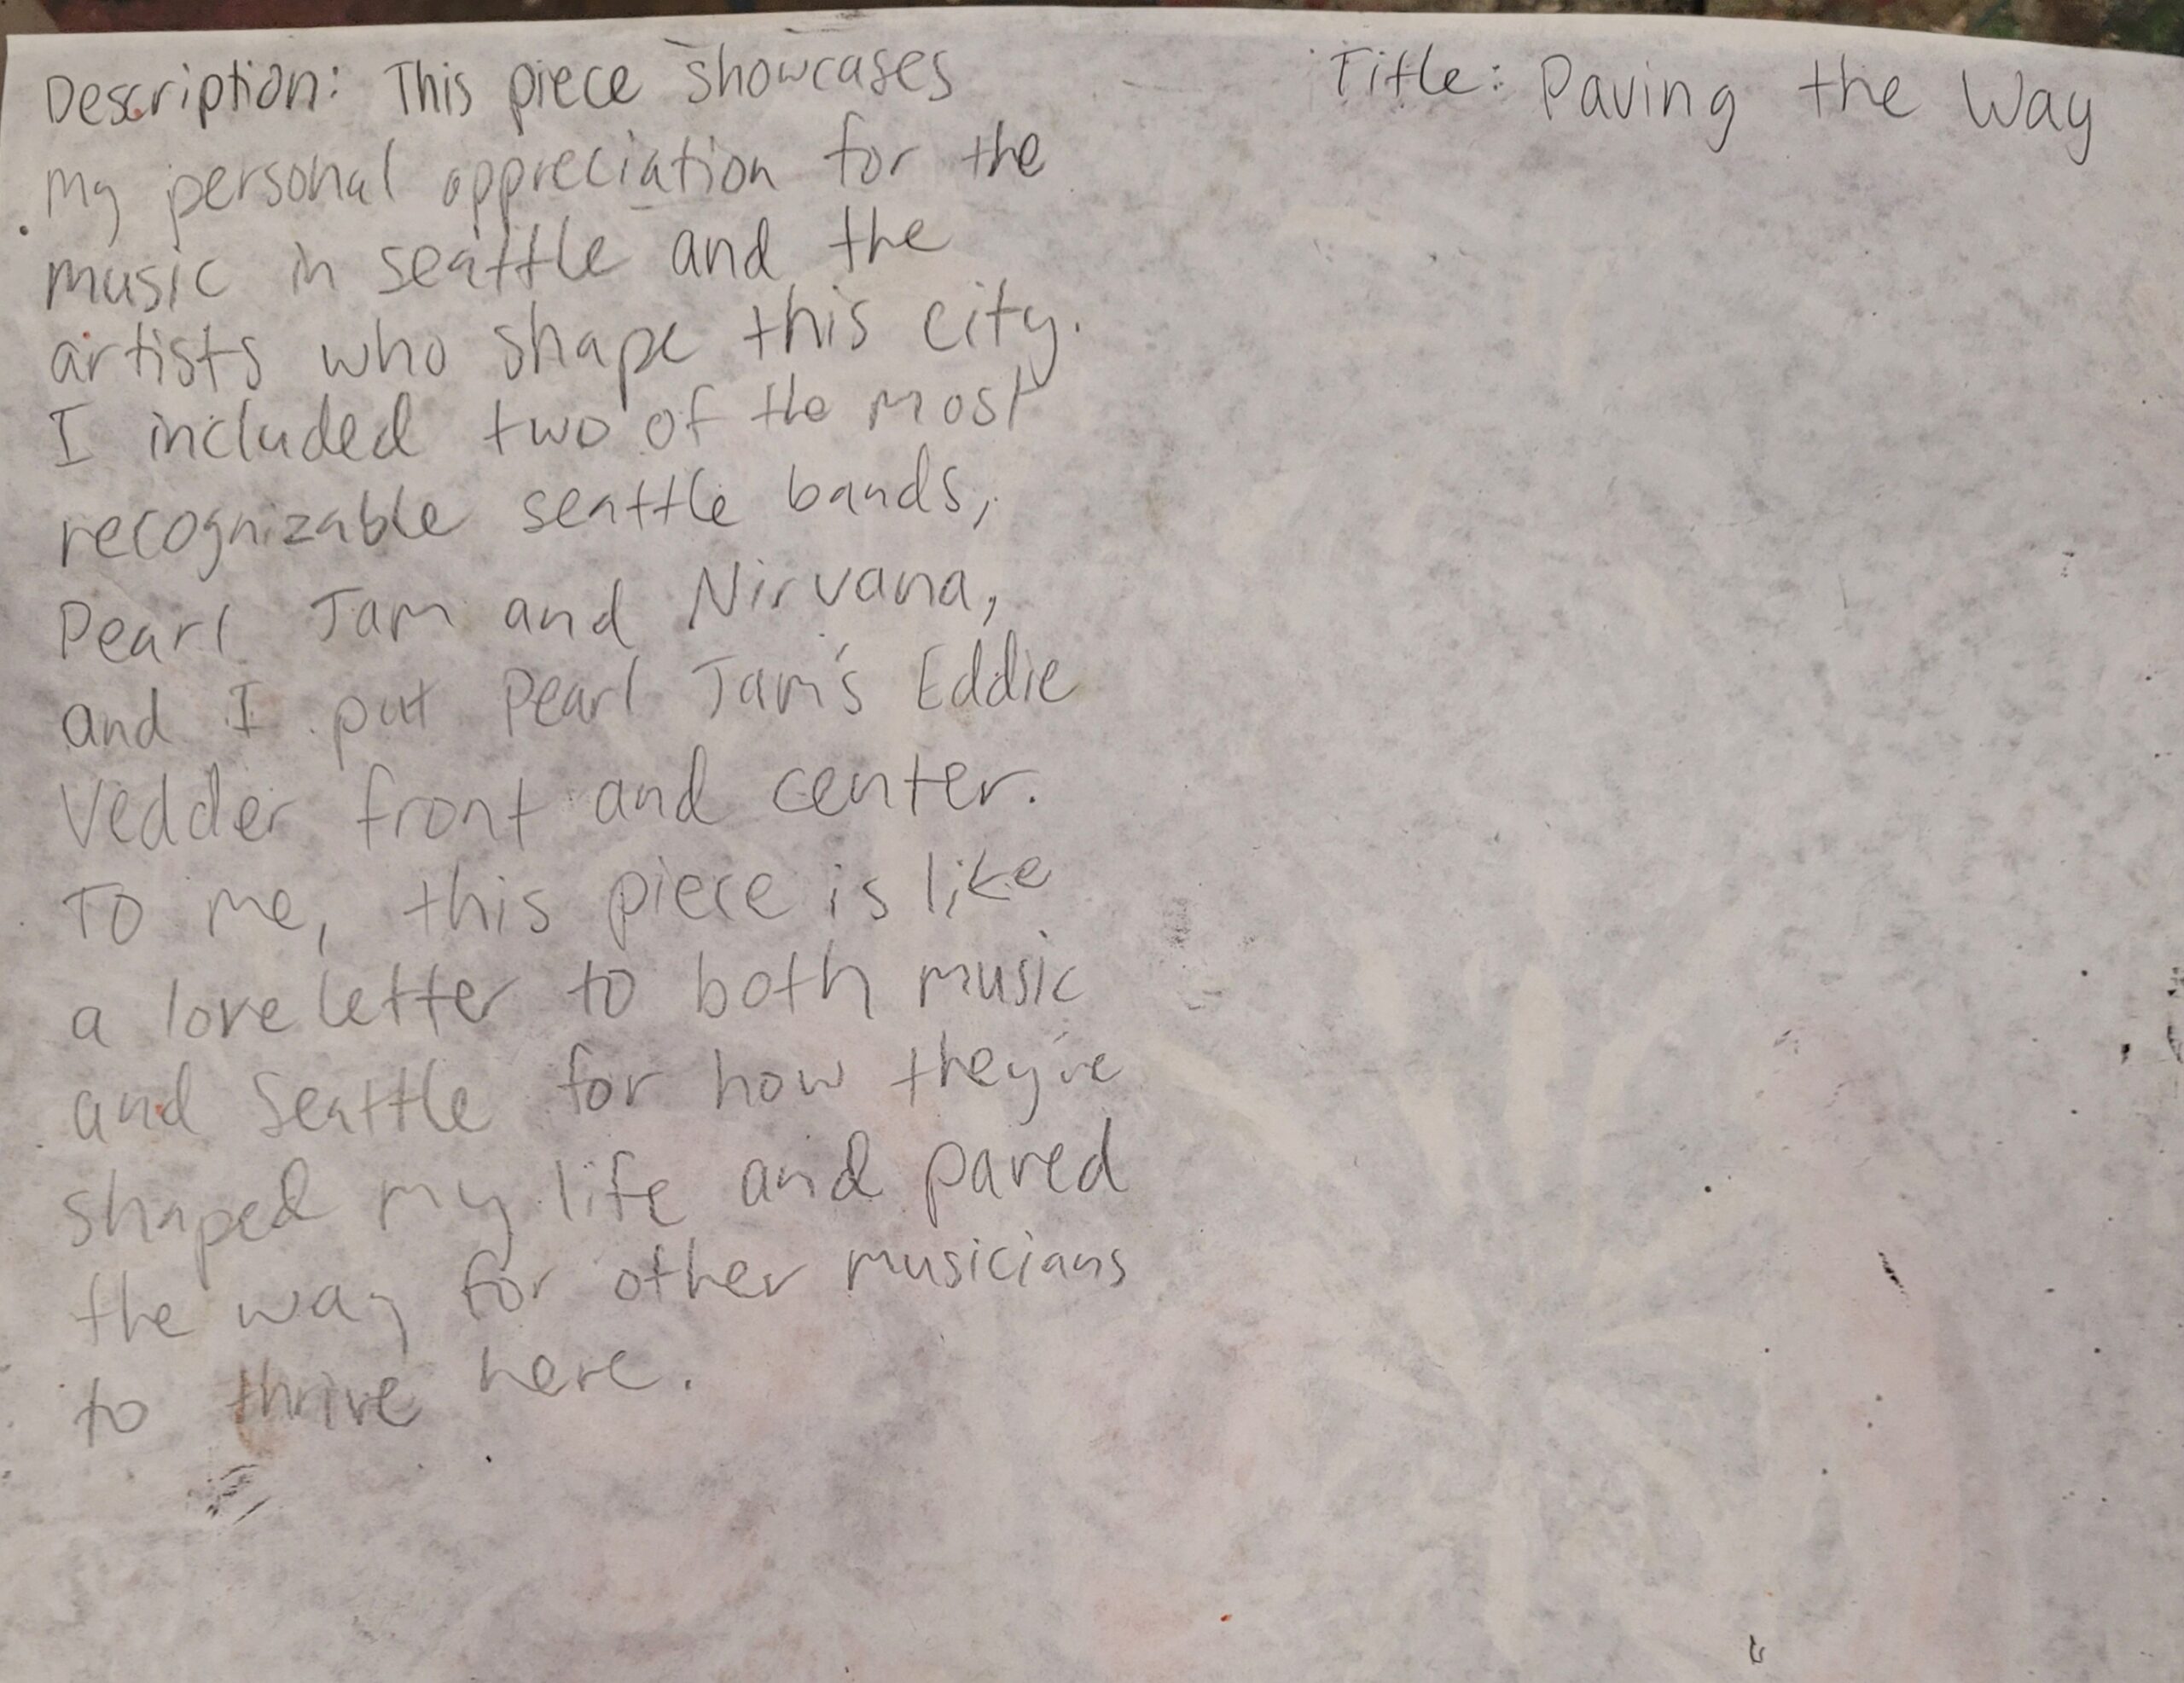 Description: This piece showcases
my personal appreciation for the
music in seattle and the
artists who shape this city.
I included two of the most
recognizable seattle bands,
Pearl Jam and Nirvana,
and I put Pearl Jam's Eddie
Vedder front and center.
To me, this piece is like
a love letter to both music
and Seattle for how they've
shaped my life and paved
the way for other musicians
to thrive here.
Title: Paving the Way